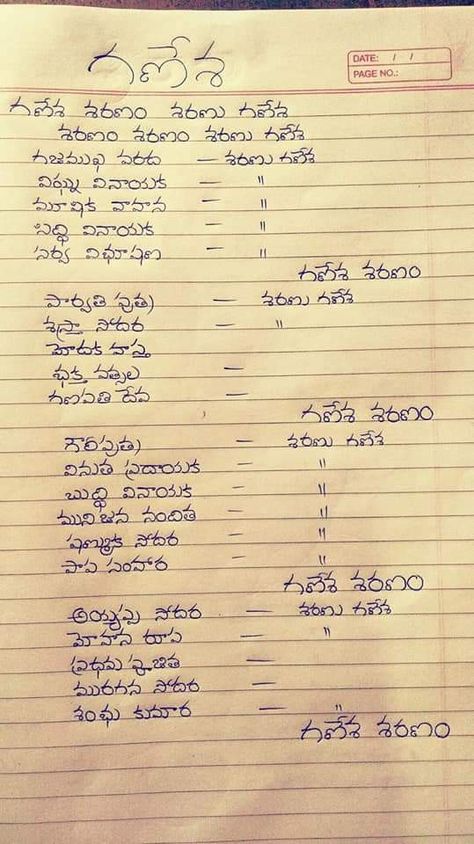 గణేశ
DATE: / /
PAGE NO.:
గణేశ శరణం శరణు గణేశ
శరణం శరణం శరణు గణేశ
గజముఖ వరద — శరణు గణేశ
విఘ్న వినాయక — "
మూషిక వాహన — "
సిద్ధి వినాయక — "
సర్వ విభూషణ — "
గణేశ శరణం
పార్వతి పుత్ర — శరణు గణేశ
శాస్తా సోదర — "
మోదక హస్త
భక్త వత్సల —
గణపతి దేవ —
గణేశ శరణం
గౌరిపుత్ర — శరణు గణేశ
వినుత ప్రదాయక — "
బుద్ధి వినాయక — "
మునిజన వందిత — "
షణ్ముక సోదర — "
పాప సంహార — "
గణేశ శరణం
అయ్యప్ప సోదర — శరణు గణేశ
మోహన రూప — "
ప్రధమ పూజిత —
మురగన సోదర —
శంభు కుమార — "
గణేశ శరణం